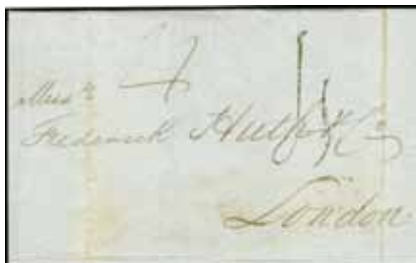 Mess^rs
Frederick Huth & Co
London